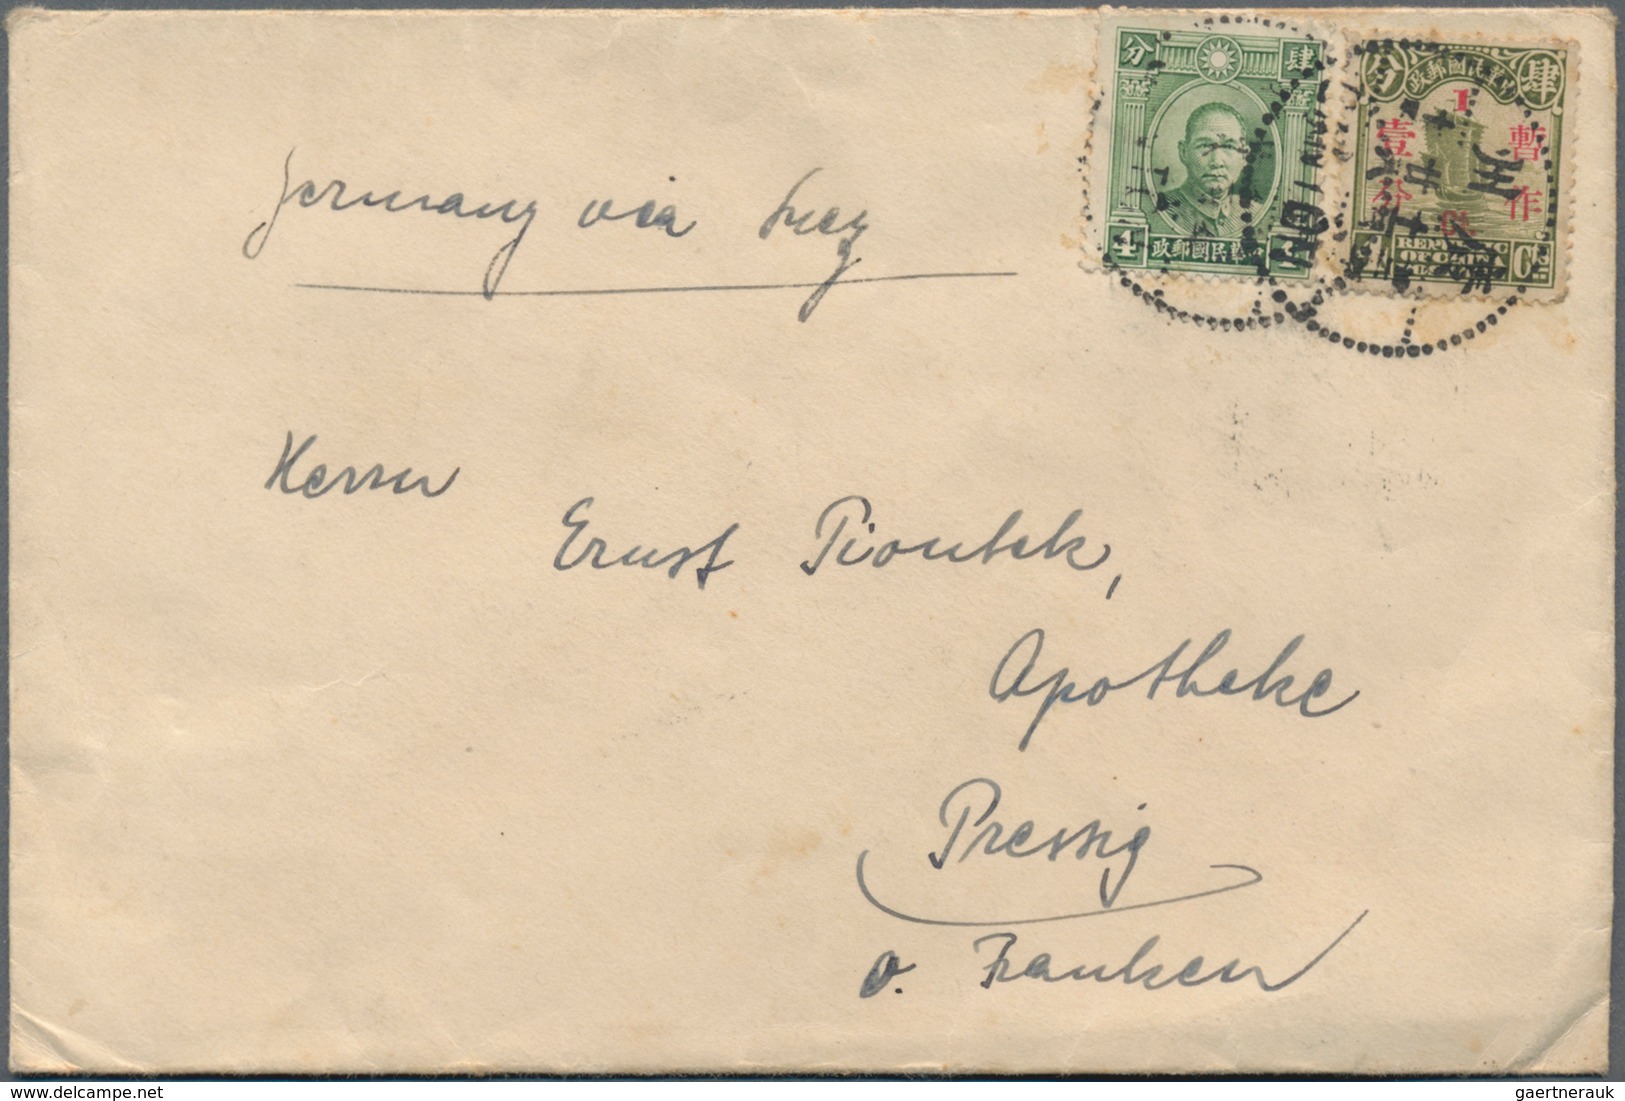 分 肆
4
政郵國民華中
分 政郵國民華中 肆
1
壹 暫
分 作
REPUBLIC
OF CHINA
Germany via Suez
Herrn
Ernst Piontek,
Apotheke
Pressig
o. Franken
gaertnerauk